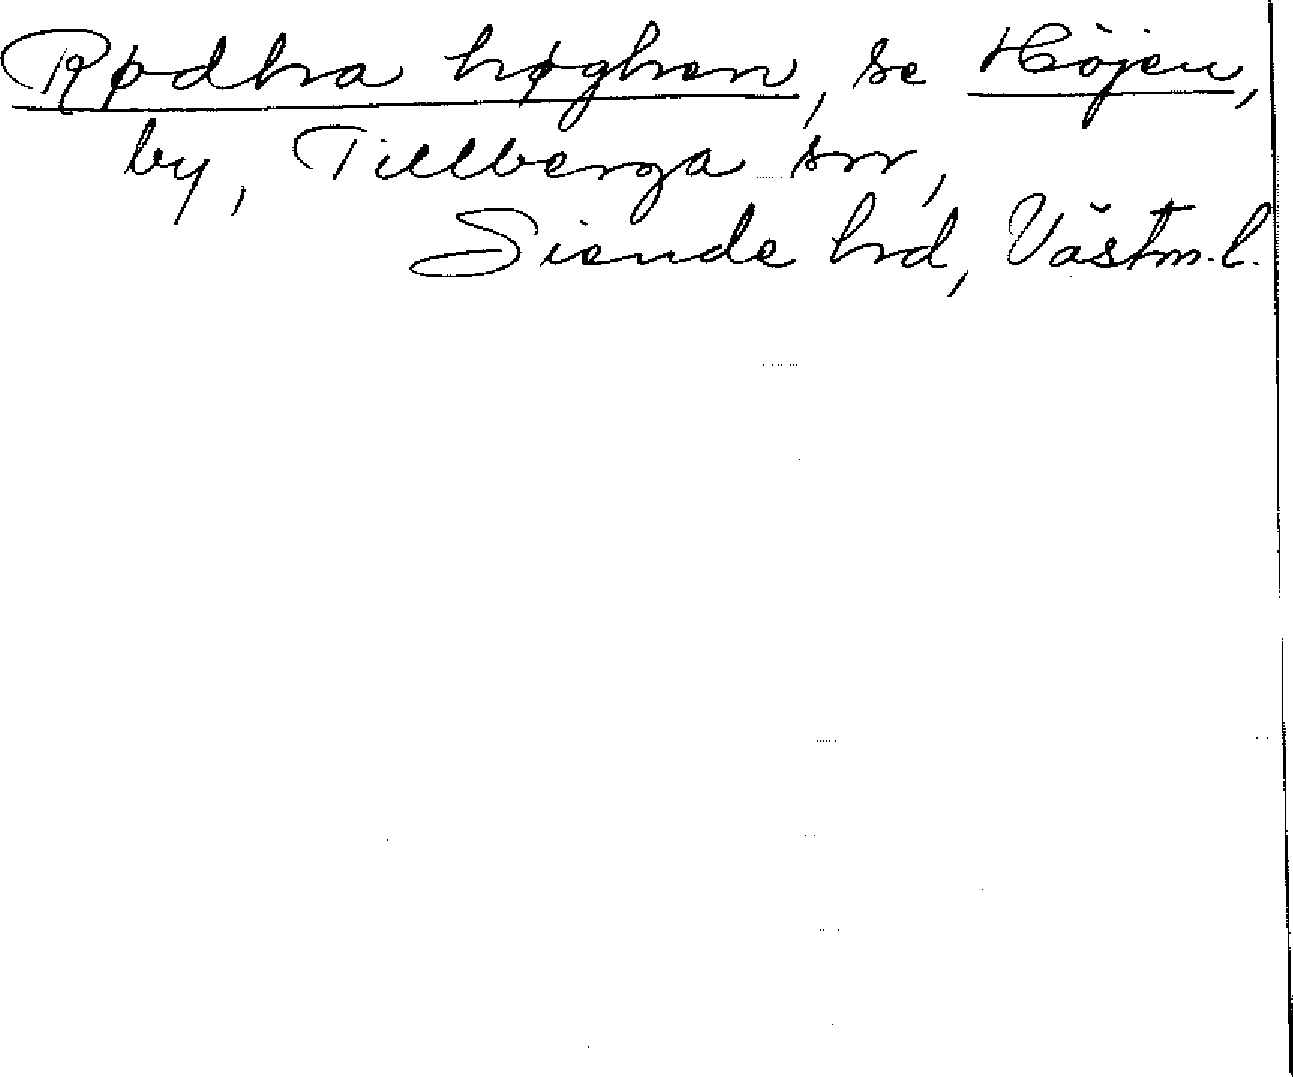 Rødhra høghen, se Höjen,
by, Tillberga sn,
Siende hd, Västm. l.